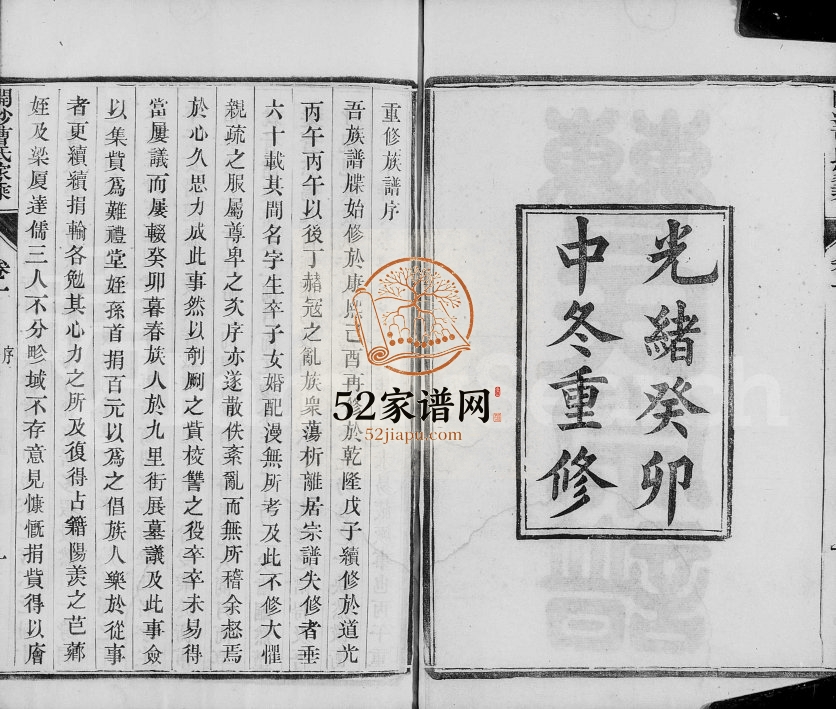 光緒癸卯
中冬重修
重修族譜序
吾族譜牒始修於康熙己酉再修於乾隆戊子續修於道光
丙午丙午以後丁赭寇之亂族衆蕩析離居宗譜失修者垂
六十載其間名字生卒子女婚配漫無所考及此不修大懼
親疏之服屬尊卑之次序亦遂散佚紊亂而無所稽余惄焉
於心久思力成此事然以剞劂之貲校讐之役卒卒未易得
當屢議而屢輟癸卯暮春族人於九里街展墓議及此事僉
以集貲爲難禮堂姪孫首捐百元以爲之倡族人樂於從事
者更續續捐輸各勉其心力之所及復得占籍陽羨之芑薌
姪及梁厦達儒三人不分畛域不存意見慷慨捐貲得以庤
氏家乘
卷一
序
一
52家谱网
52jiapu.com